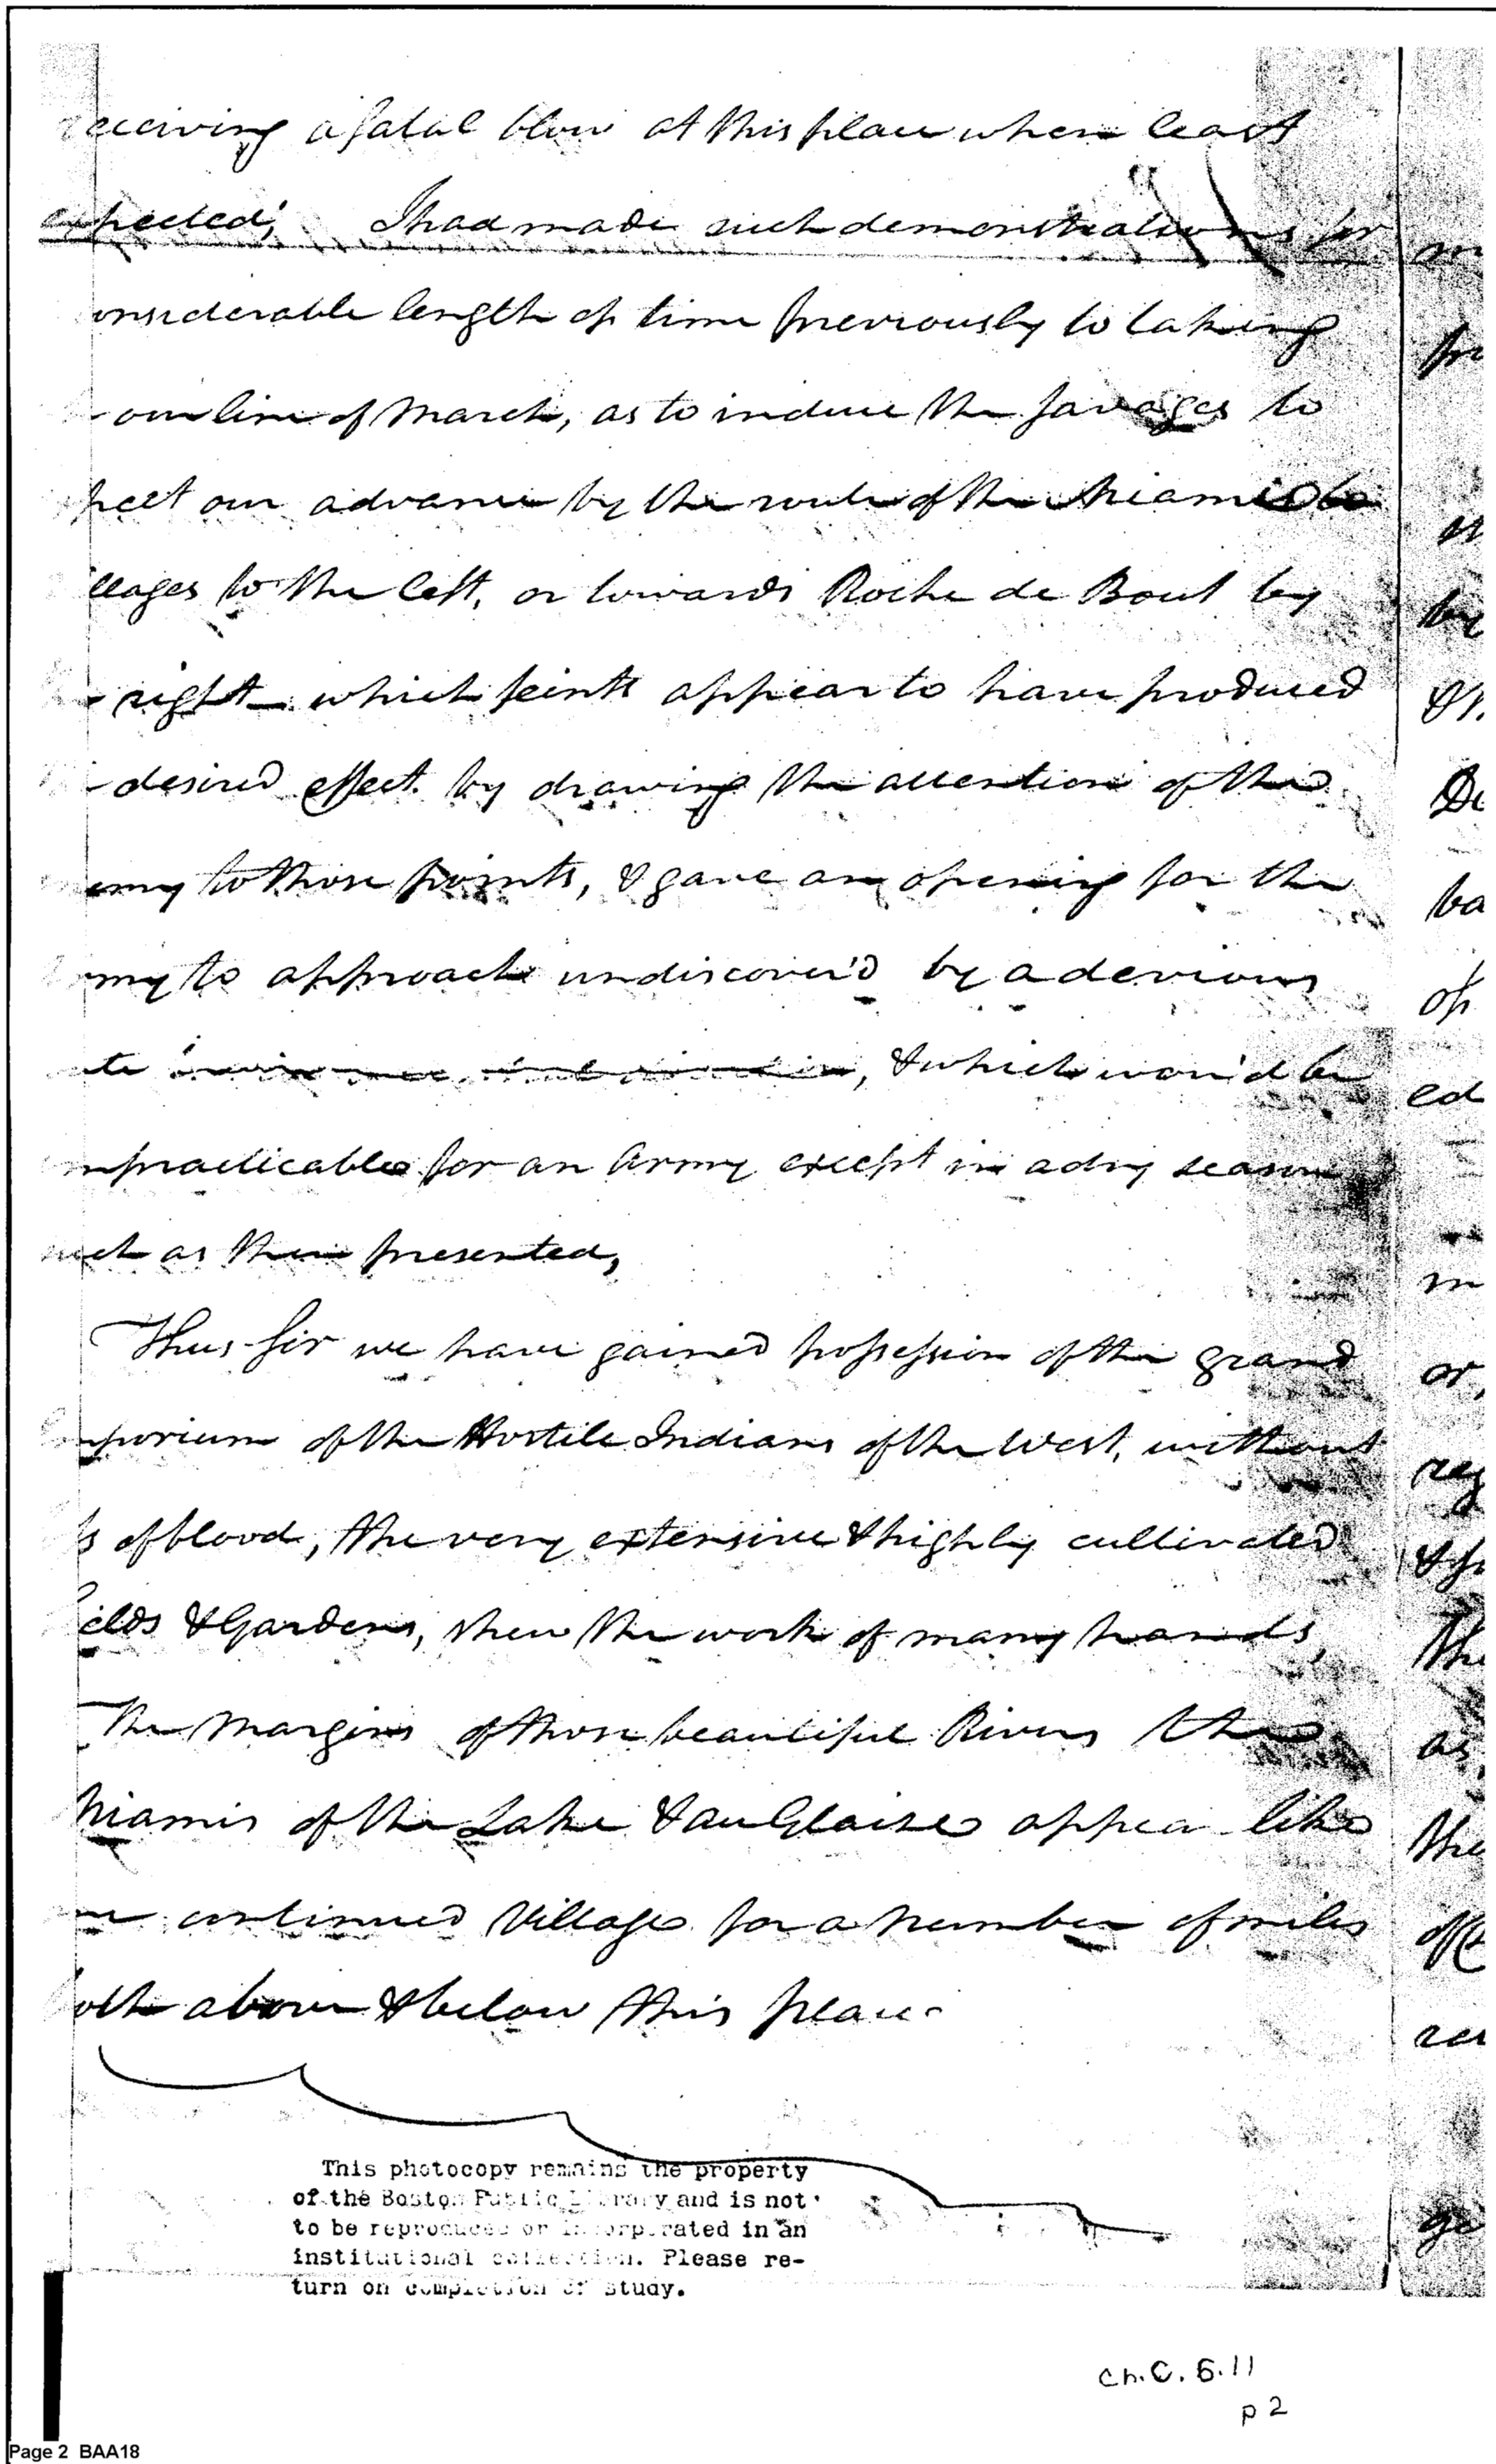 receiving a fatal blow at this place when least
expected; I had made such demonstrations for
onsiderable length of time previously to taking
our line of March, as to induce the savages to
pect our advance by the route of the Miami
illages to the left, or towards Roche de Bout by
right – which feints appear to have produced
desired effect by drawing the attention of the
emy to those points, & gave an opening for the
my to approach undiscover'd by a devious
ute , & which wou'd be
mpracticable for an Army except in a dry season
uch as then presented,
Thus sir we have gained possession of the grand
mporium of the Hostile Indians of the West, without
s of blood, the very extensive & highly cultivated
ields & Gardens, shew the work of many hands,
The Margins of those beautiful Rivers the
Miamis of the Lake & au Glaize appear like
ne continued Village for a number of miles
both above & below this place
This photocopy remains the property
of the Boston Public Library and is not
to be reproduced or incorporated in an
institutional collection. Please re-
turn on completion of study.
Ch.C.5.11
p 2
Page 2 BAA18